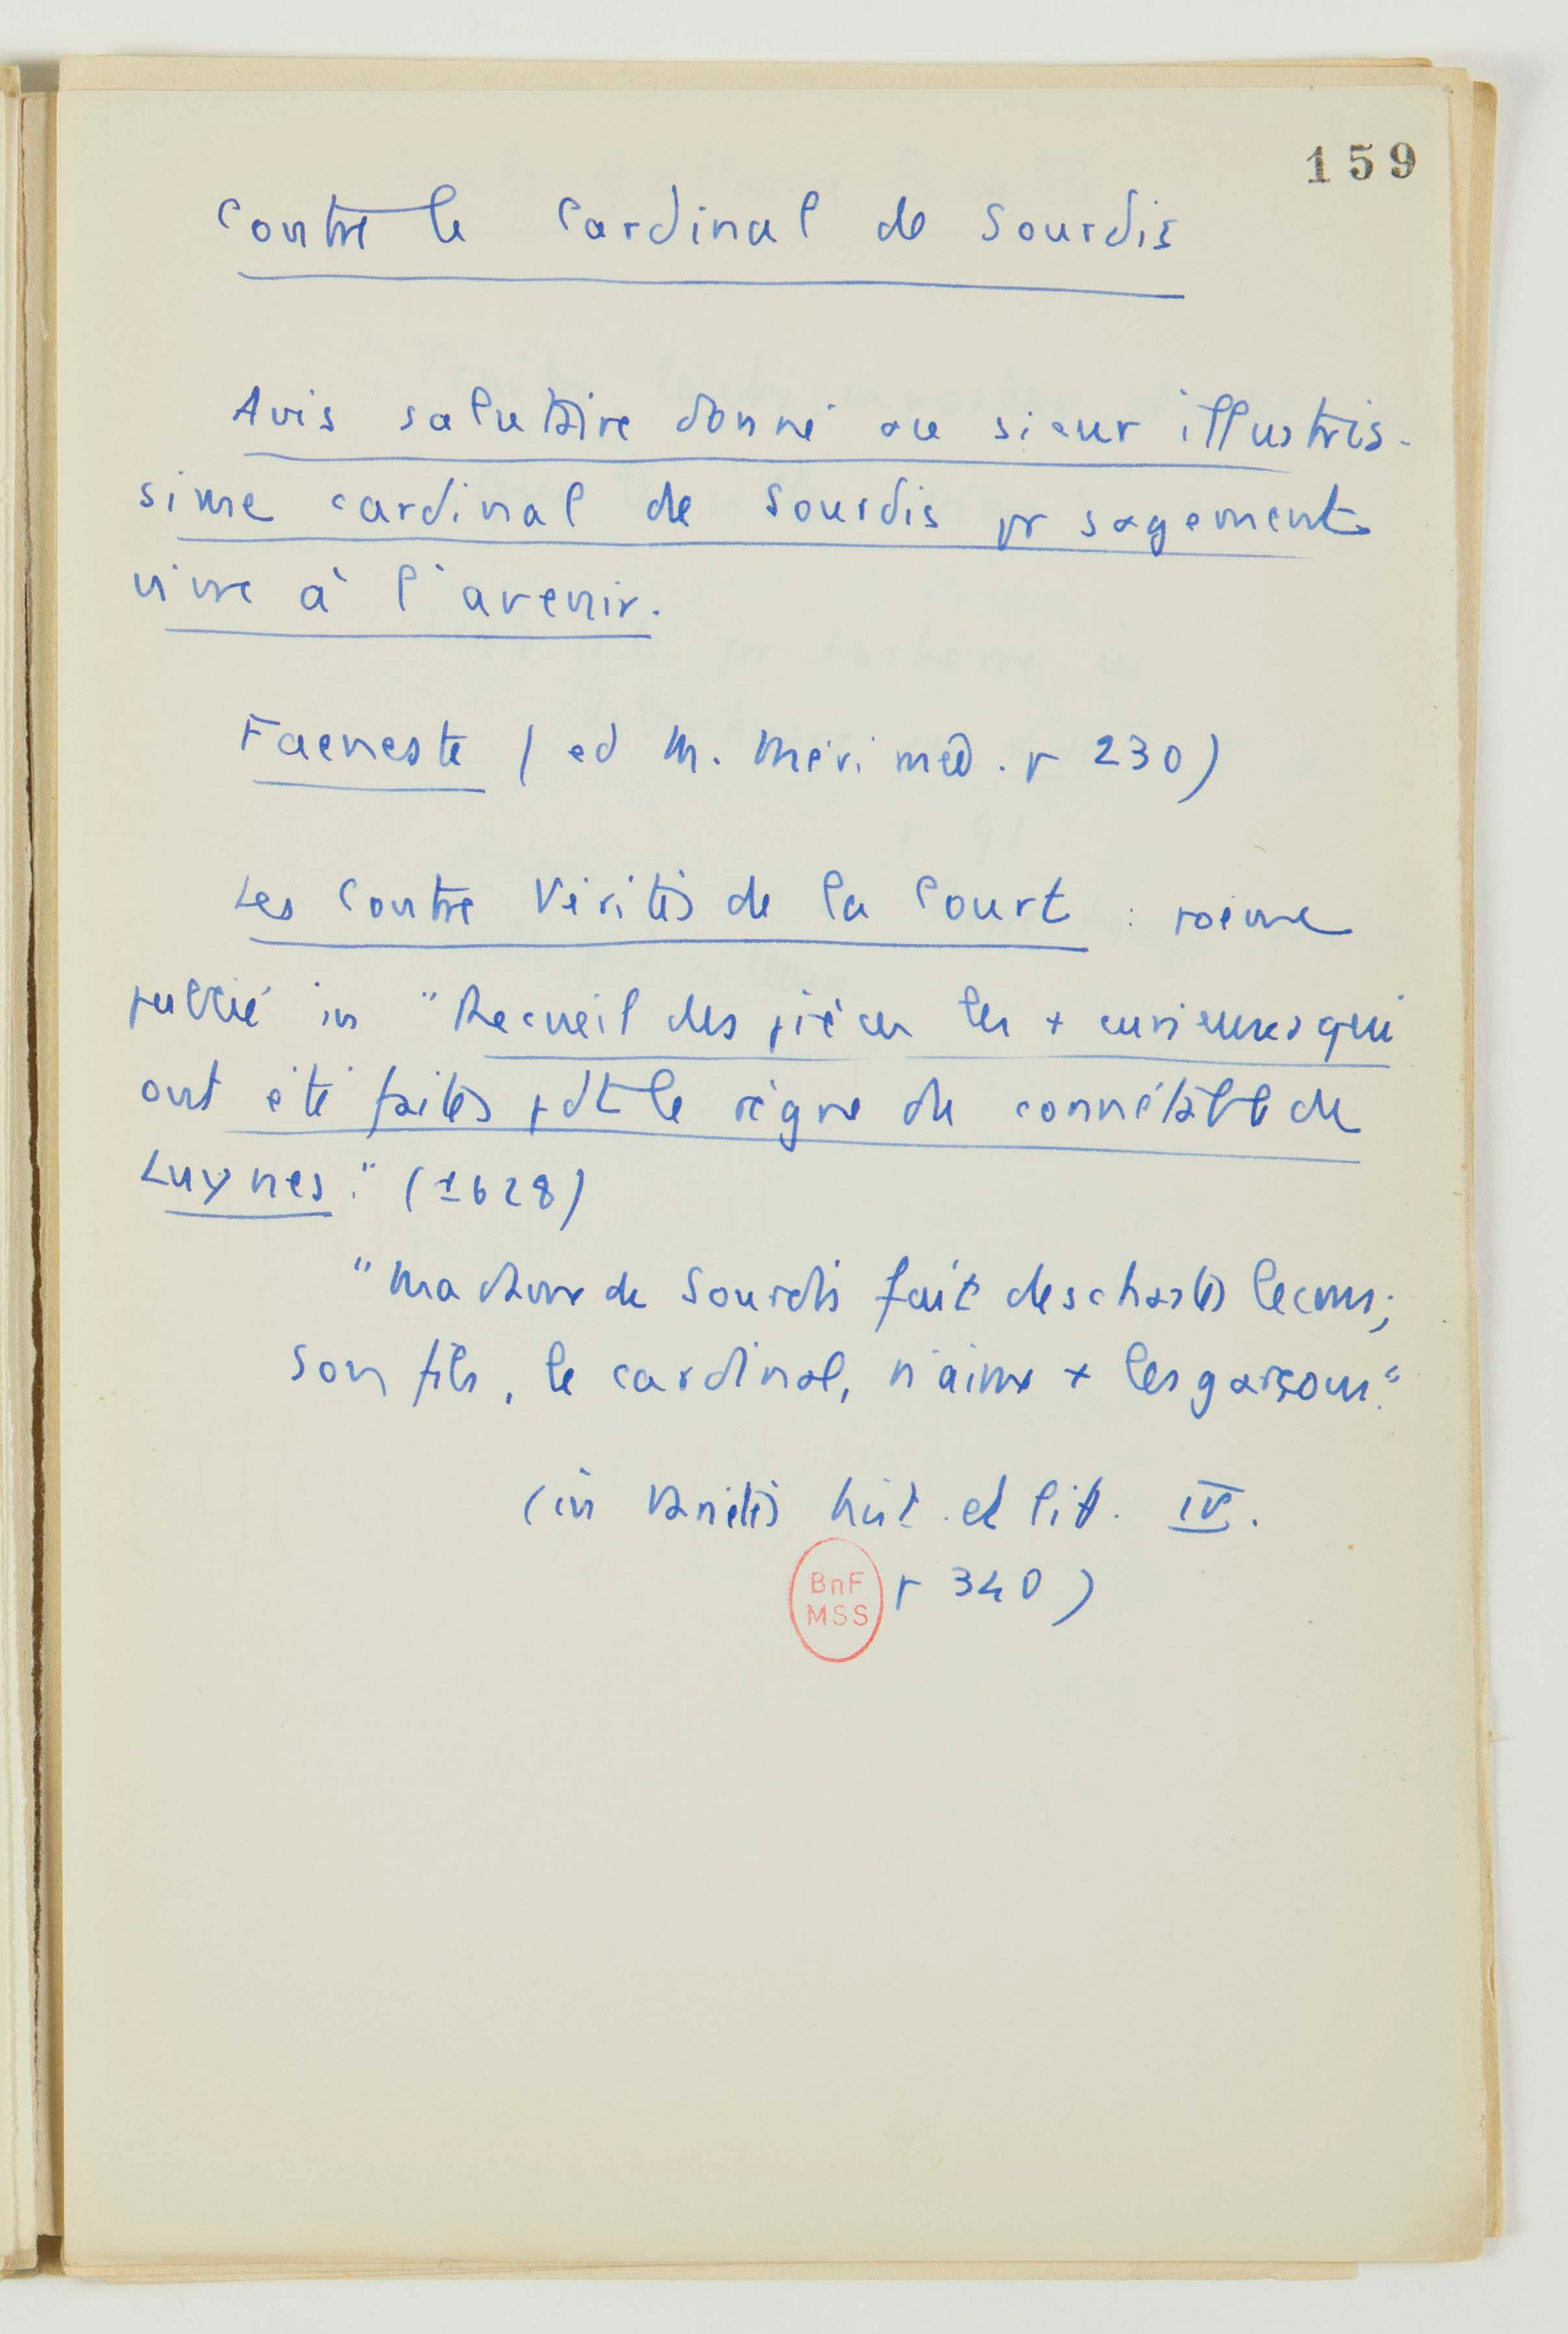 159
Contre le Cardinal de Sourdis
Avis salutaire donné au sieur illustris-
sime cardinal de Sourdis pr sagement
vivre à l'avenir.
Faeneste (ed M. Mérimée. p 230)
Les Contre Vérités de la Court : poème
publié in "Recueil des pièces les + curieuses qui
ont été faites pdt le règne du connétable de
Luynes." (1628)
"Madame de Sourdis fait des chastes leçons;
Son fils, le cardinal, n'aime + les garçons."
(in Variétés hist. et litt. IV.
p 340)
BnF
MSS